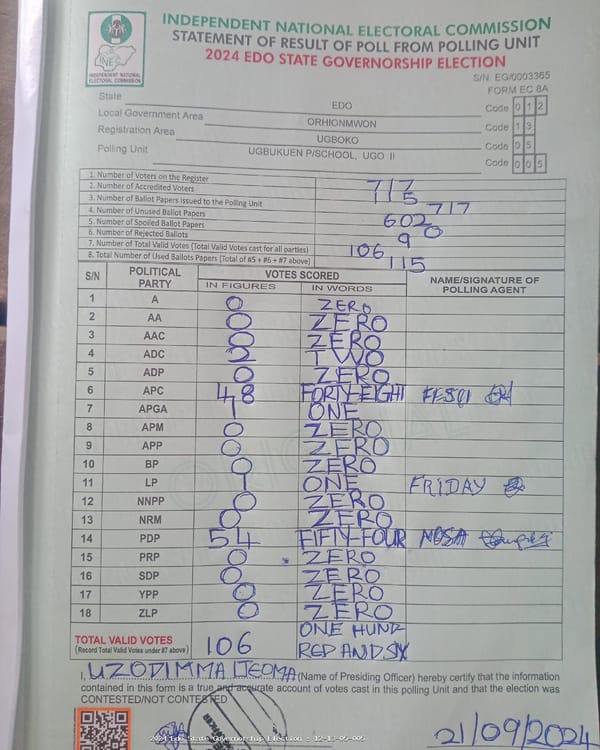 INDEPENDENT NATIONAL ELECTORAL COMMISSION
STATEMENT OF RESULT OF POLL FROM POLLING UNIT
2024 EDO STATE GOVERNORSHIP ELECTION
INEC
INDEPENDENT NATIONAL
ELECTORAL COMMISSION
S/N: EG/0003365
FORM EC 8A
State EDO Code 0 1 2
Local Government Area ORHIONMWON Code 1 3
Registration Area UGBOKO Code 0 5
Polling Unit UGBUKUEN P/SCHOOL, UGO II Code 0 0 5
1. Number of Voters on the Register 717
2. Number of Accredited Voters 115
3. Number of Ballot Papers issued to the Polling Unit 717
4. Number of Unused Ballot Papers 602
5. Number of Spoiled Ballot Papers 0
6. Number of Rejected Ballots 9
7. Number of Total Valid Votes (Total Valid Votes cast for all parties) 106
8. Total Number of Used Ballots Papers (Total of #5 + #6 + #7 above) 115
S/N POLITICAL PARTY VOTES SCORED NAME/SIGNATURE OF POLLING AGENT
IN FIGURES IN WORDS
1 A 0 ZERO
2 AA 0 ZERO
3 AAC 0 ZERO
4 ADC 2 TWO
5 ADP 0 ZERO
6 APC 48 FORTY-EIGHT
7 APGA 1 ONE
8 APM 0 ZERO
9 APP 0 ZERO
10 BP 0 ZERO
11 LP 1 ONE FRIDAY
12 NNPP 0 ZERO
13 NRM 0 ZERO
14 PDP 54 FIFTY-FOUR NOSA
15 PRP 0 ZERO
16 SDP 0 ZERO
17 YPP 0 ZERO
18 ZLP 0 ZERO
TOTAL VALID VOTES 106 ONE HUND
(Record Total Valid Votes under #7 above) RED AND SIX
I, UZODIMMA IJEOMA (Name of Presiding Officer) hereby certify that the information
contained in this form is a true and accurate account of votes cast in this polling Unit and that the election was
CONTESTED/NOT CONTESTED
2024 Edo State Governorship Election - 12-13-05-005
21/09/2024